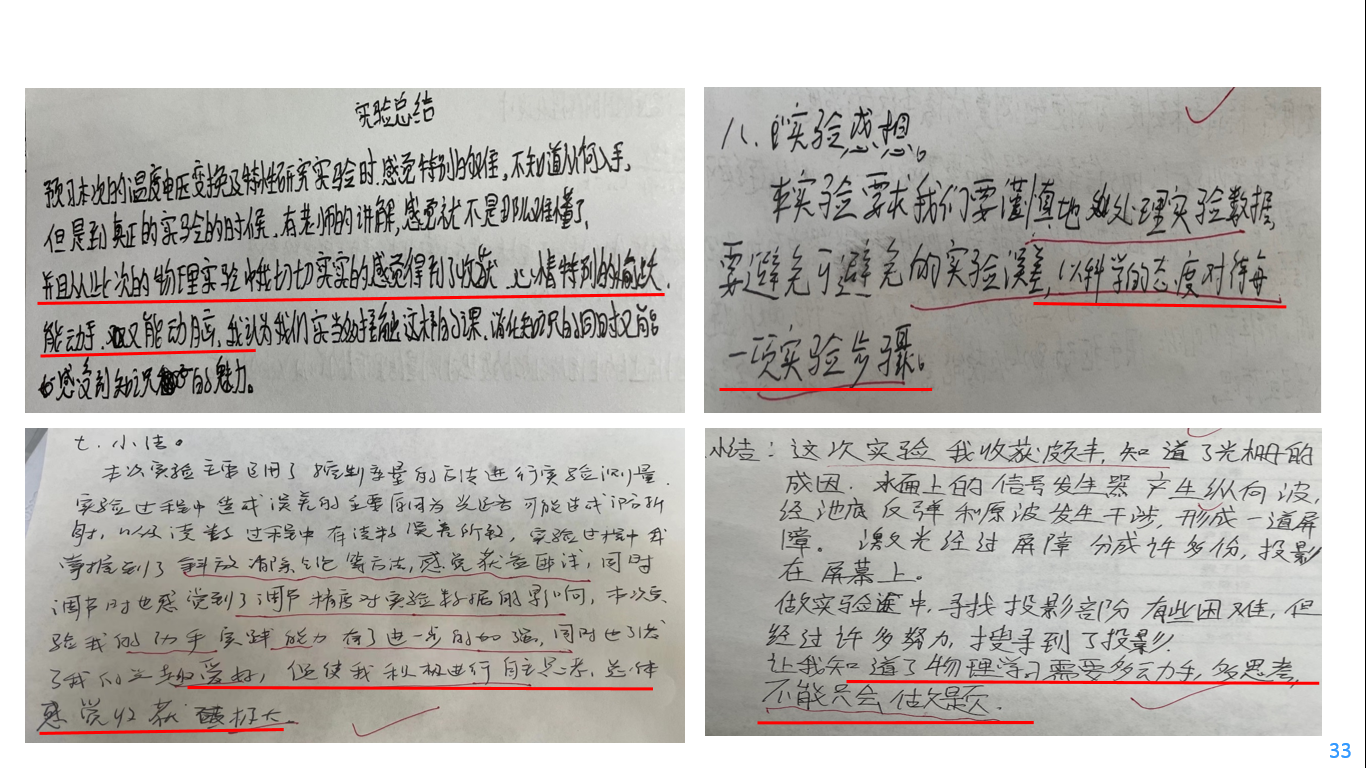 实验总结
预习本次的温度电压变换及特性研究实验时,感觉特别的艰难,不知道从何入手,
但是到真正的实验的时候,有老师的讲解,感觉就不是那么难懂了,
并且从此次的物理实验中我切切实实的感觉得到了收获,心情特别的愉快
能动手,又能动脑,我认为我们实当多接触这样的课,消化知识的同时又能
感受到知识的魅力。
八、实验感想。
本实验要求我们要谨慎地处理实验数据,
要避免可避免的实验误差,以科学的态度对待每
一项实验步骤。
七、小结。
本次实验主要运用了控制变量的方法进行实验测量,
实验过程中造成误差的主要原因为
以及读数过程中有读数误差所致,实验过程中我
掌握到了 等方法,感觉获益匪浅,同时
调节时也感觉到了调节精度对实验数据的影响,本次实
验我的动手实践能力有了进一步的加强,同时也
了我的兴趣爱好,促使我积极进行自主思考,总体
感觉收获挺大。
小结:这次实验我收获颇丰,知道了光栅的
成因.水面上的信号发生器产生纵向波,
经池底反弹和原波发生干涉,形成一道屏
障。激光经过屏障分成许多份,投影
在屏幕上。
做实验途中,寻找投影部分有些困难,但
经过许多努力,找寻到了投影.
让我知道了物理学习需要多动手,多思考,
不能只会做题.
33